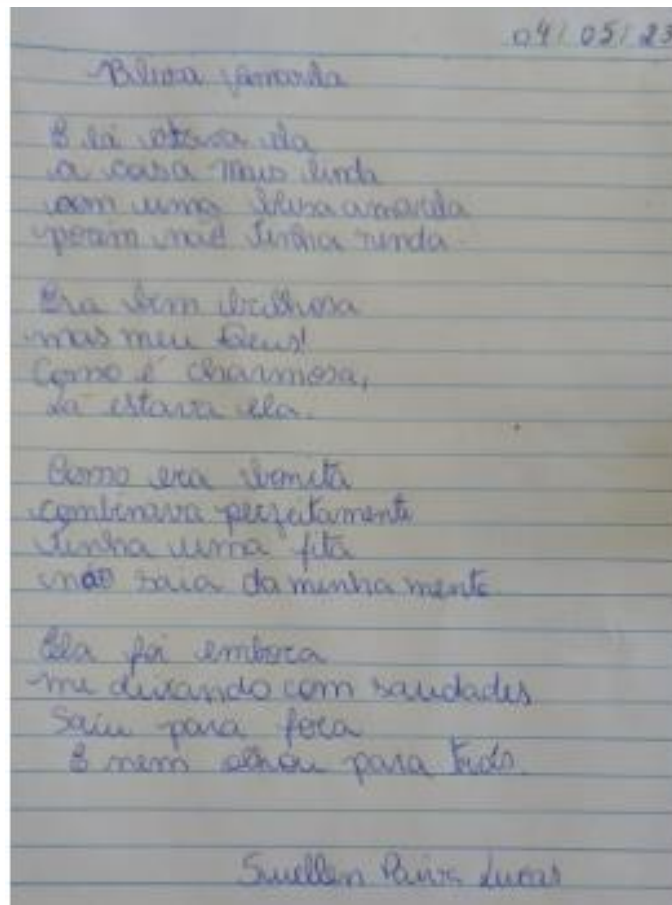 04/05/23
Blusa amarela
E lá estava ela
a coisa mais linda
com uma blusa amarela
porem não tinha renda.
Era bem brilhosa
mas meu Deus!
Como é charmosa,
Lá estava ela.
Como era bonita
combinava perfeitamente
tinha uma fita
não saia da minha mente.
Ela foi embora
me deixando com saudades
Saiu para fora
E nem olhou para trás.
Suellen Paiva Lucas